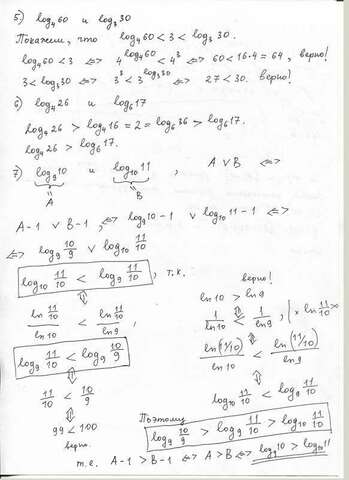 5) log₄60 и log₃30
Покажем, что log₄60 < 3 < log₃30.
log₄60 < 3 ⟺ 4^(log₄60) < 4³ ⟺ 60 < 16·4 = 64, верно!
3 < log₃30 ⟺ 3³ < 3^(log₃30) ⟺ 27 < 30. верно!
6) log₄26 и log₆17
log₄26 > log₄16 = 2 = log₆36 > log₆17.
log₄26 > log₆17.
7) log₉10 и log₁₀11, A ∨ B ⟺
A B
A-1 ∨ B-1, ⟺ log₉10 - 1 ∨ log₁₀11 - 1 ⟺
⟺ log₉ 10/9 ∨ log₁₀ 11/10
log₁₀ 11/10 < log₉ 11/10, т.к.
⇕
ln 11/10 / ln10 < ln 11/10 / ln9,
log₉ 11/10 < log₉ 10/9
⇕
11/10 < 10/9
⇕
99 < 100
верно.
верно!
ln10 > ln9
⇕
1/ln10 < 1/ln9, | × ln 11/10 >
⇕
ln(11/10)/ln10 < ln(11/10)/ln9
⇕
log₁₀ 11/10 < log₉ 11/10
Поэтому
log₉ 10/9 > log₉ 11/10 > log₁₀ 11/10
т.е. A-1 > B-1 ⟺ A > B ⟺ log₉10 > log₁₀11